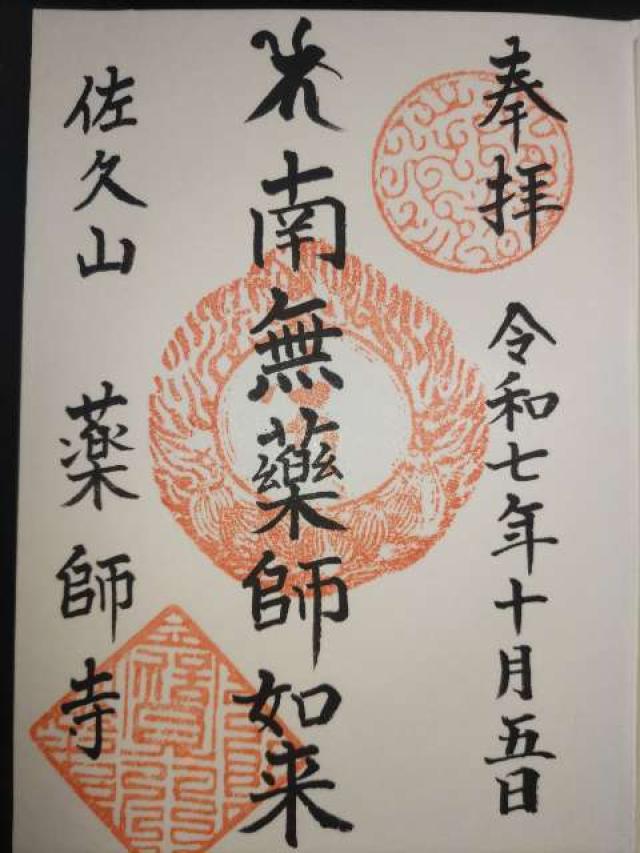 奉拝 令和七年十月五日
南無藥師如来
佐久山 薬師寺